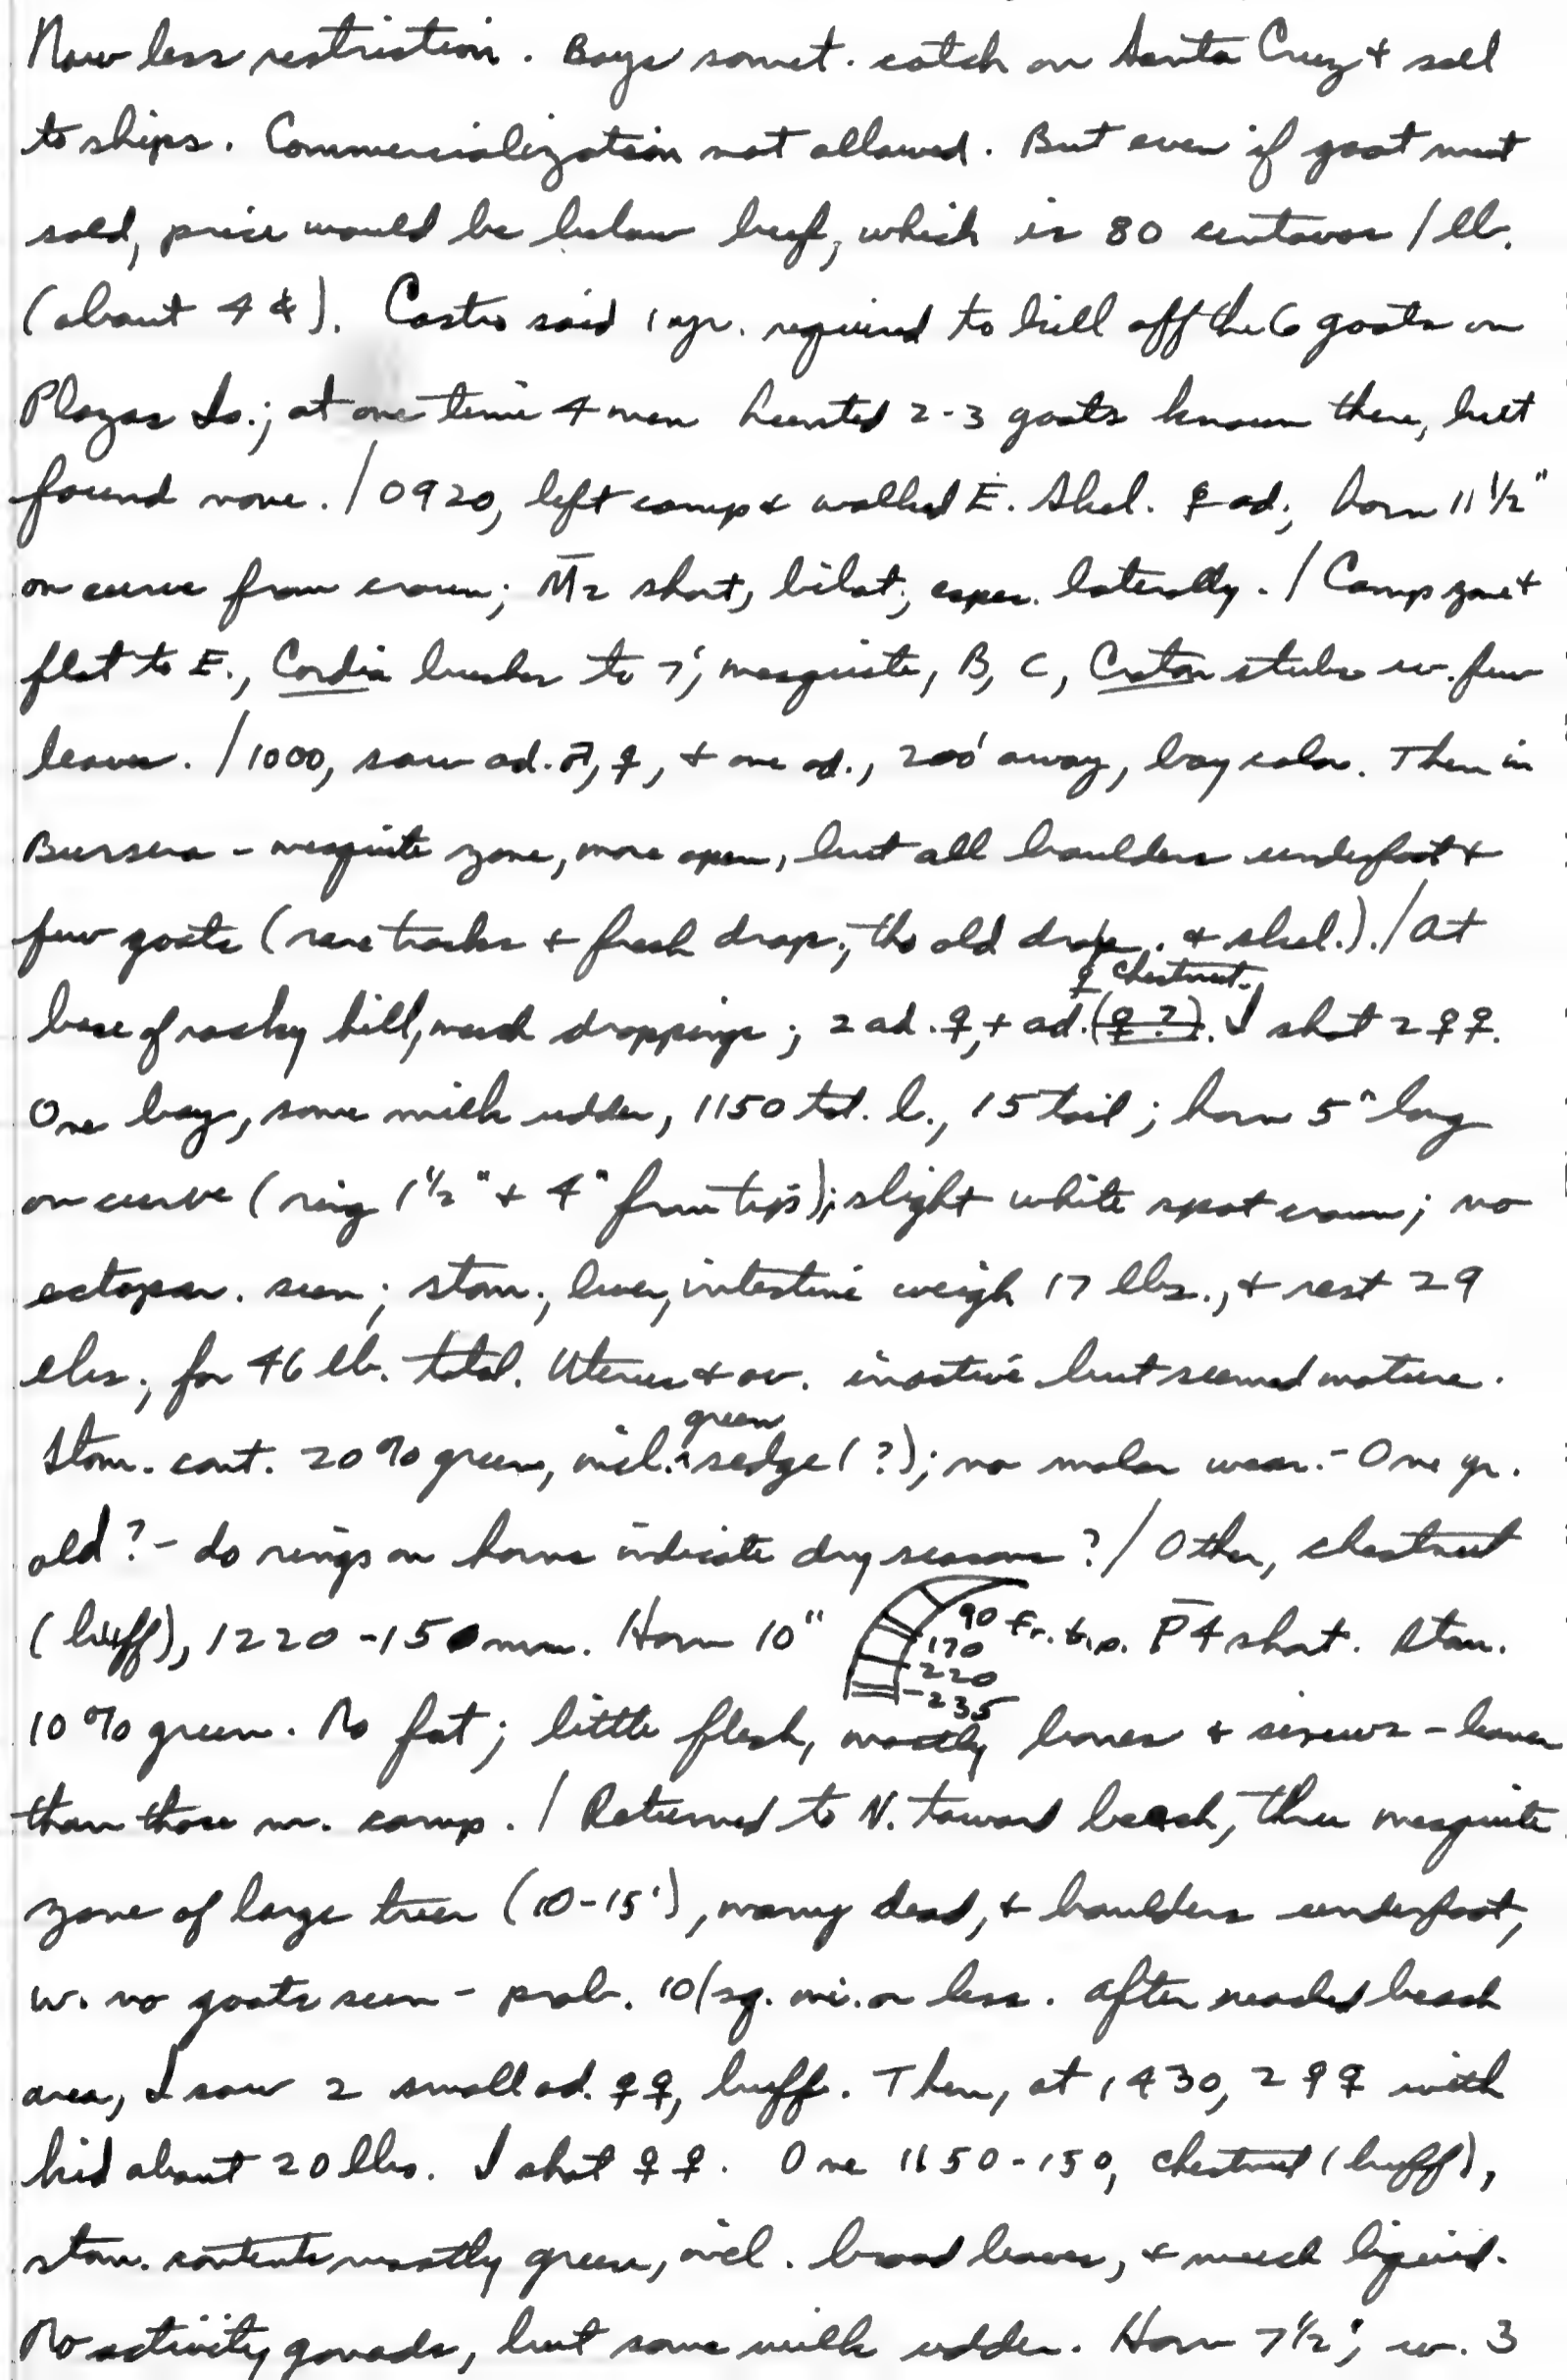 Now less restriction. Boys somet. catch on Santa Cruz & sell
to ships. Commercialization not allowed. But even if goat meat
sold, price would be below beef, which is 80 centavos / lb.
(about 4 ¢). Castro said 1 yr. required to kill off the 6 goats on
Plazas Is.; at one time 4 men hunted 2-3 goats known there, but
found none. / 0920, left camp & walked E. Skel. ♀ ad.; horn 11 1/2"
on curve from crown; M2 short, bilat., laterally. / Camp zone &
flat to E., Cordia bushes to 7', mesquite, B, C, Croton stubs w. few
leaves. / 1000, saw ad. ♂, ♀, & one ad., 200' away, bay color. Then in
Bursera - mesquite zone, more open, but all boulders underfoot &
few goats (rare tracks & fresh drop., tho old drop. & skel.). / At
♀ chestnut.
base of rocky hill, much droppings; 2 ad. ♀, + ad. (♀ ?). I shot 2 ♀♀.
One bay, some milk udder, 1150 tot. l., 15 tail; horn 5" long
on curve (ring 1 1/2" & 4" from tip); slight white spot crown; no
ectopar. seen; stom., liver, intestine weigh 17 lbs., & rest 29
lbs., for 46 lb. total. Uterus & ov. inactive but seemed mature.
green
Stom. cont. 20% green, incl. ^ sedge (?); no molar wear. - One yr.
old? - do rings on horns indicate dry seasons? / Other, chestnut
(buff), 1220-150 mm. Horn 10" 90 fr. tip. P4 short. Stom.
170
220
235
10% green. No fat; little flesh, mostly bones & sinews - leaner
than those nr. camp. / Returned to N. toward beach, thru mesquite
zone of large trees (10-15'), many dead, & boulders underfoot,
w. no goats seen - prob. 10/sq. mi. or less. After reached beach
area, I saw 2 small ad. ♀♀, buff. Then, at 1430, 2 ♀♀ with
kid about 20 lbs. I shot ♀♀. One 1150-150, chestnut (buff),
stom. contents mostly green, incl. broad leaves, & much liquid.
No activity gonads, but some milk udder. Horn 7 1/2", w. 3